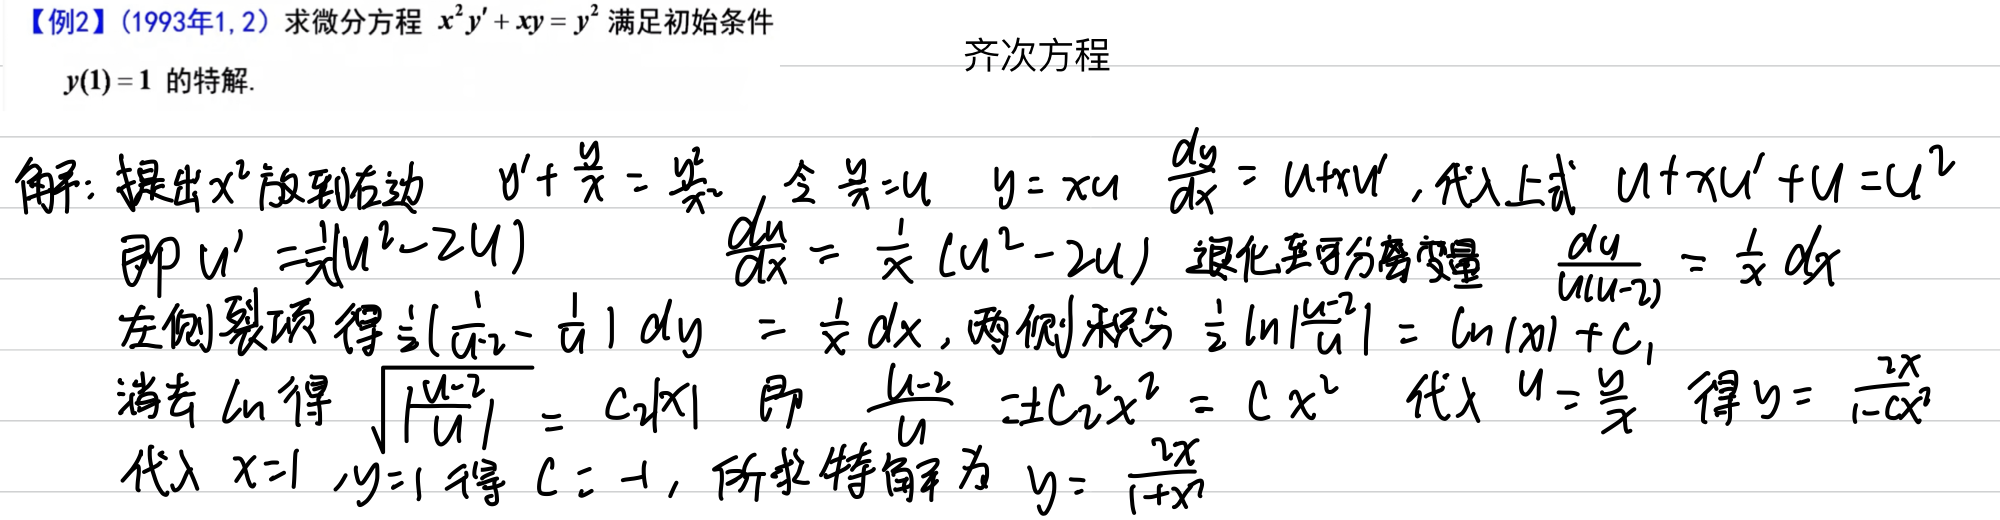 【例2】(1993年1,2) 求微分方程 x²y′+xy=y² 满足初始条件
y(1)=1 的特解.
齐次方程
解: 提出x²放到右边 y′+y/x=y²/x² 令 y/x=u y=xu dy/dx=u+xu′, 代入上式 u+xu′+u=u²
即 u′=1/x(u²-2u) du/dx=1/x(u²-2u) 退化至可分离变量 du/u(u-2)=1/x dx
左侧裂项 得 1/2(1/u-2 - 1/u) dy = 1/x dx, 两侧积分 1/2 ln|u-2/u| = ln|x|+C₁
消去 ln 得 √|u-2/u| = C₂|x| 即 u-2/u = ±C₂²x² = Cx² 代入 u=y/x 得 y=2x/1-Cx²
代入 x=1, y=1 得 C=-1, 所求特解为 y=2x/1+x²